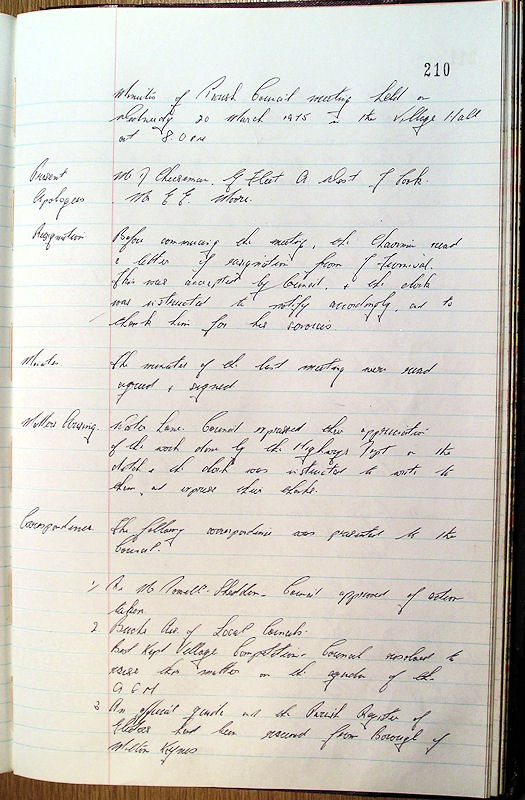 210
Minutes of Parish Council meeting held on
Wednesday 20 March 1975 in the Village Hall
at 8.0 pm
Present Mr J Cheeseman. G Fleet A West J Cook.
Apologies Mr E E. Moore.
Resignation Before commencing the meeting, the Chairman read
a letter of resignation from J Furnival.
This was accepted by Council, & the clerk
was instructed to notify accordingly, and to
thank him for his services
Minutes. The minutes of the last meeting were read
agreed & signed
Matters Arising. Water Lane. Council expressed their appreciation
of the work done by the Highways Dept on the
ditch & the clerk was instructed to write to
them, and express their thanks.
Correspondence The following correspondence was presented to the
Council.
1, Re Mr Powell-Sheddon- Council approved of action
taken
2. Bucks Ass. of Local Councils.
Best Kept Village Competition- Council resolved to
raise this matter on the agenda of the
A G M
3 An official guide and the Parish Register of
had been received from Borough of
Milton Keynes